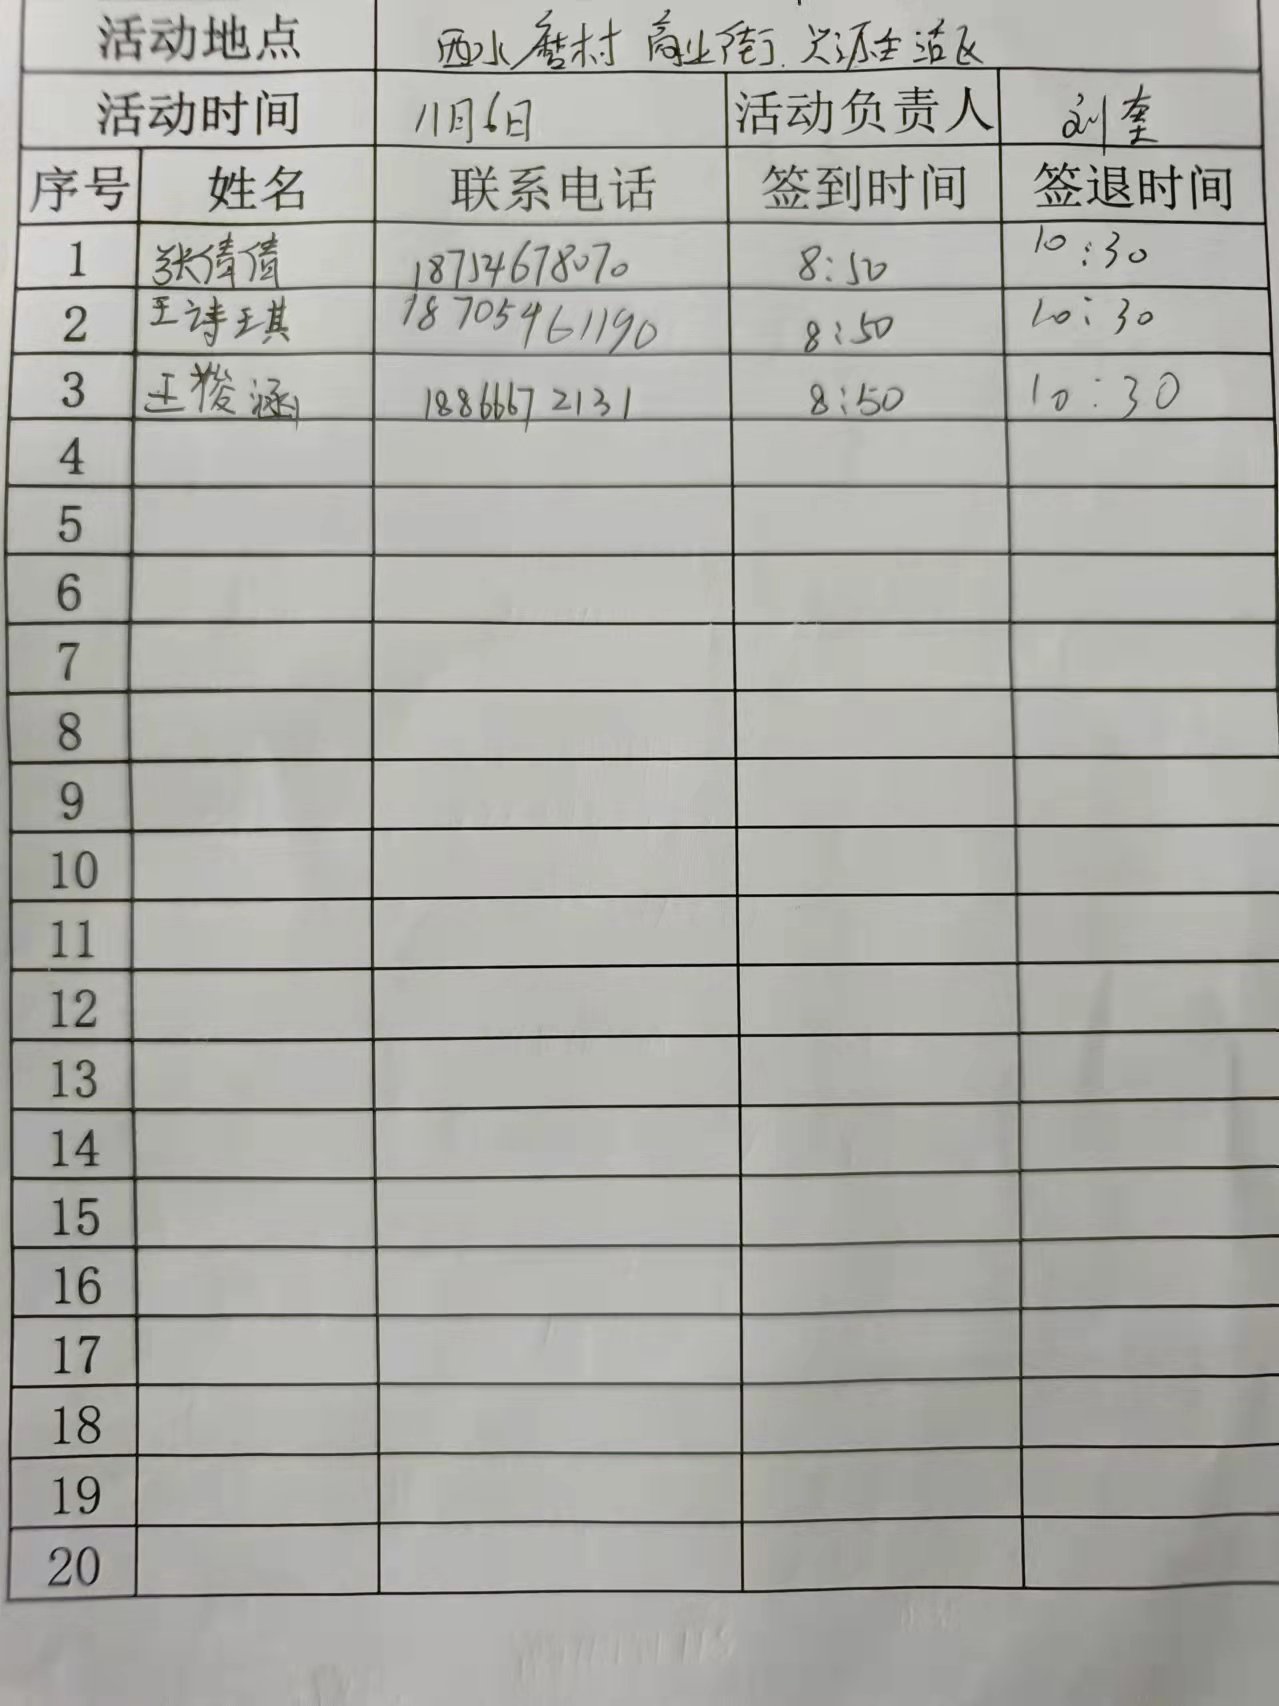 活动地点 西水磨村 商业街 兴源生活区
活动时间 11月6日 活动负责人 刘奎
序号 姓名 联系电话 签到时间 签退时间
1 张倩倩 18754678070 8:50 10:30
2 王诗琪 18705461190 8:50 10:30
3 王骏涵 18866672131 8:50 10:30
4
5
6
7
8
9
10
11
12
13
14
15
16
17
18
19
20